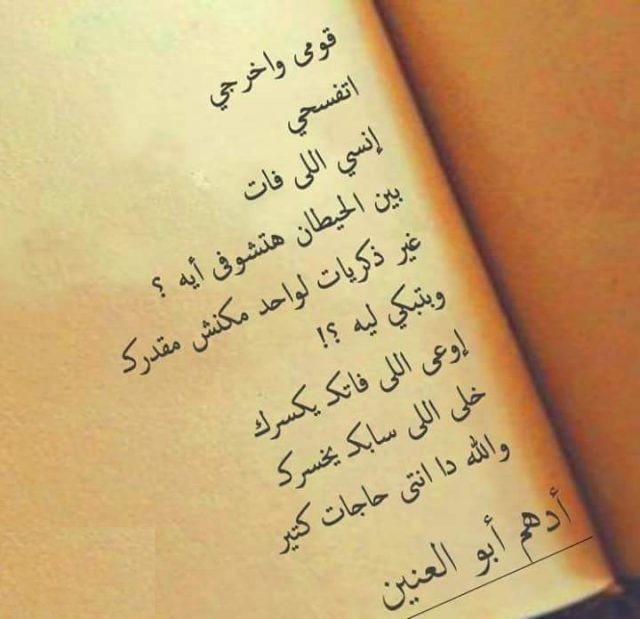 قومى واخرجي
اتفسحي
إنسي اللى فات
بين الحيطان هتشوفى أيه ؟
غير ذكريات لواحد مكنش مقدرك
وبتبكي ليه ؟!
إوعى اللى فاتك يكسرك
خلى اللى سابك يخسرك
والله دا انتى حاجات كتير
أدهم أبو العنين